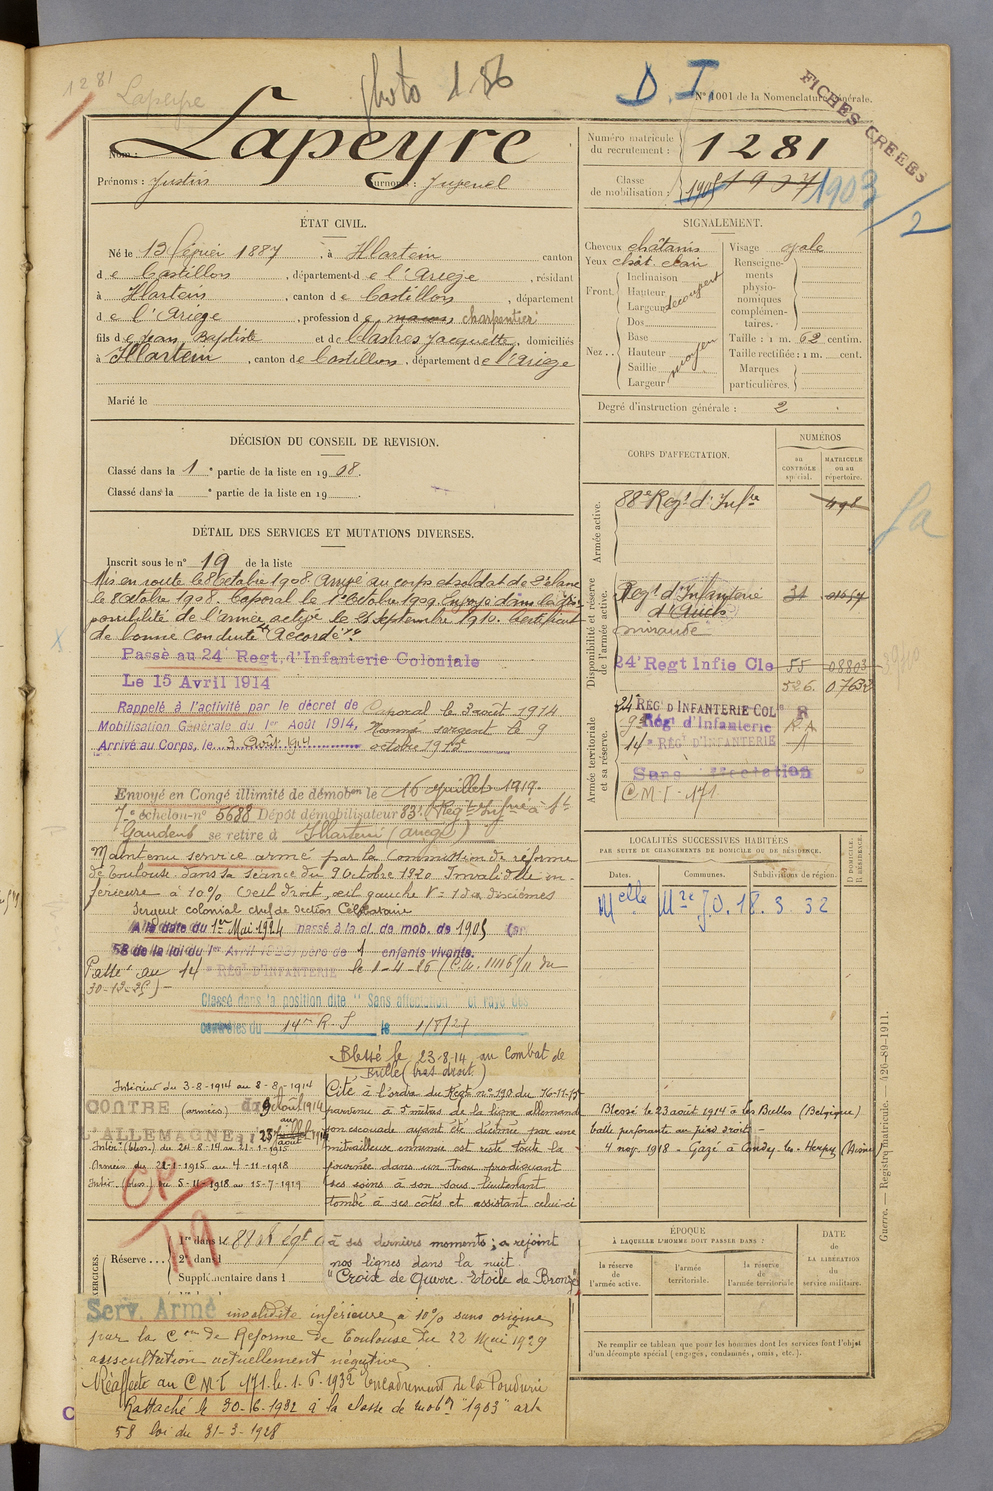 1281 Lapeyre
photo 1.86
D.I
N° 1001 de la Nomenclature générale.
FICHES CRÉÉES
Nom : Lapeyre
Prénoms : Justin Surnoms : Juvenel
Numéro matricule du recrutement : 1281
Classe de mobilisation : 1905 1907 1903/2
ÉTAT CIVIL.
Né le 13 février 1887, à Illartein canton
de Castillon, département de l'Ariège, résidant
à Illartein, canton de Castillon, département
de l'Ariège, profession de maçon, charpentier
fils de Jean Baptiste et de Castres Jacquette, domiciliés
à Illartein, canton de Castillon, département de l'Ariège
Marié le
SIGNALEMENT.
Cheveux châtains
Yeux chât. clair
Front. Inclinaison
Hauteur
Largeur
découvert
Nez.. Dos
Base
Hauteur
Saillie
Largeur
moyen
Visage ovale
Renseignements physionomiques complémentaires.
Taille : 1 m. 62 centim.
Taille rectifiée : 1 m. cent.
Marques particulières.
Degré d'instruction générale : 2
DÉCISION DU CONSEIL DE REVISION.
Classé dans la 1e partie de la liste en 1908.
Classé dans la e partie de la liste en 19 .
CORPS D'AFFECTATION.
NUMÉROS
au contrôle spécial.
matricule ou au répertoire.
Armée active.
88e Regt d'Infie 498
Disponibilité et réserve de l'armée active.
Regt d'Infanterie 31
d'Auch
Mirande
24e Regt Infie Cle 55 08803
526. 0763
Armée territoriale et sa réserve.
24 REGT D'INFANTERIE COLe R
Rég' d'Infanterie
14e RÉGT D'INFANTERIE A
Sans affectation
C.M.I. 171
DÉTAIL DES SERVICES ET MUTATIONS DIVERSES.
Inscrit sous le n° 19 de la liste
Mis en route le 8 Octobre 1908. Arrivé au corps et soldat de 2e classe
le 8 Octobre 1908. Caporal le 1er Octobre 1909. Envoyé dans la dis-
ponibilité de l'armée active le 25 septembre 1910. Certificat
de bonne conduite "Accordé".
Passé au 24e Regt. d'Infanterie Coloniale
Le 15 Avril 1914
Rappelé à l'activité par le décret de Caporal le 3 août 1914
Mobilisation Générale du 1er Août 1914, Nommé sergent le 9
Arrivé au Corps, le 3 Août 1914 octobre 1915
Envoyé en Congé illimité de démobon le 16 Juillet 1919.
7e échelon n° 5688 Dépôt démobilisateur 83e Regt Infrie à St
Gaudens se retire à Illartein (Ariège)
Maintenu service armé par la Commission de réforme
de Toulouse dans sa séance du 9 Octobre 1920 Invalidité in-
férieure à 10% Oeil droit, oeil gauche V = 1 dixièmes
Sergent colonial chef de section
A la date du 1er Mai 1924 passé à la cl. de mob. de 1905 (art
58 de la loi du 1er Avril 1923) père de 1 enfants vivants.
Passe au 14e RÉGT D'INFANTERIE le 1-4-26 (C.M. 11116/11 du
30-12-25) -
Classé dans la position dite "Sans affectation" et rayé des
contrôles du 14me R.I le 1/5/27
LOCALITÉS SUCCESSIVES HABITÉES
PAR SUITE DE CHANGEMENTS DE DOMICILE OU DE RÉSIDENCE.
Dates. Communes. Subdivisions de région. D DOMICILE. R RÉSIDENCE.
Melle Mre J.O. 18. 3 32
Blessé le 23-8-14 au Combat de
Bulles (bras droit.)
Intérieur du 3-8-1914 au 8-8-1914
CONTRE (armées) du 9 Août 1914
au
L'ALLEMAGNE 23 août 1914
Intér (bless.) du 24-8-14 au 21-1-1915
Armées du 22-1-1915 au 4-11-1918
Intér. (bless.) du 5-11-1918 au 15-7-1919
CP/119
Cité à l'ordre du Regt n° 190 du 16-11-15
parvenu à 5 mètres de la ligne allemande
son escouade ayant été décimée par une
mitrailleuse ennemie est resté toute la
journée dans un trou prodiguant
ses soins à son sous lieutenant
tombé à ses côtés et assistant celui-ci
à ses derniers moments ; a rejoint
nos lignes dans la nuit.
"Croix de Guerre. Etoile de Bronze"
Blessé le 23 août 1914 à les Bulles (Belgique)
balle perforante au pied droit -
4 nov. 1918 - Gazé à Condey-les-Herpy (Aisne)
EXERCICES.
Réserve... 1re dans le 88e Régt
2e dans l
Supplémentaire dans l
ÉPOQUE
À LAQUELLE L'HOMME DOIT PASSER DANS :
la réserve de l'armée active.
l'armée territoriale.
la réserve de l'armée territoriale
DATE de LA LIBÉRATION du service militaire.
Ne remplir ce tableau que pour les hommes dont les services font l'objet
d'un décompte spécial (engagés, condamnés, omis, etc.).
Serv. Armé invalidité inférieure à 10% sans origine
par la Con de Réforme de Toulouse du 22 Mai 1929
auscultation actuellement négative
Réaffecté au C.M.I. 171. le 1. 6. 1932 Encadrement de la Poudrerie
Rattaché le 30-6-1932 à la classe de mobon "1903" art
58 loi du 31-3-1928
Guerre. — Registre matricule. — 426-89-1911.